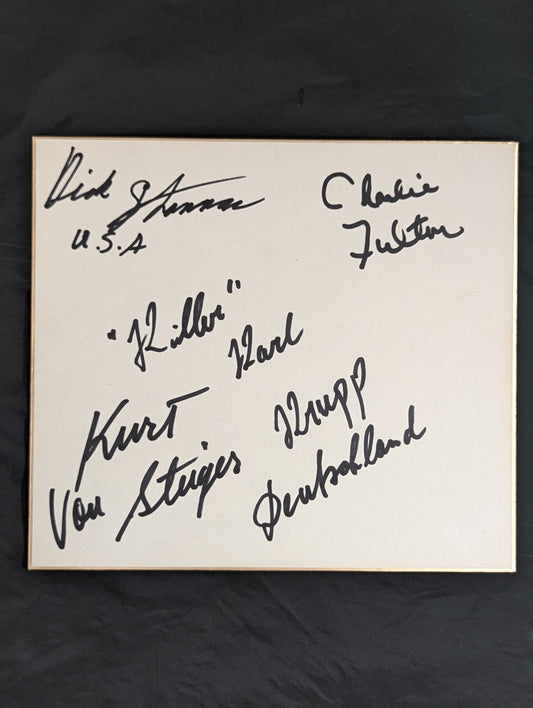 Dick Steinborn
U.S.A
Charlie
Fulton
"Killer"
Karl
Krupp
Deutschland
Kurt
Von Steiger